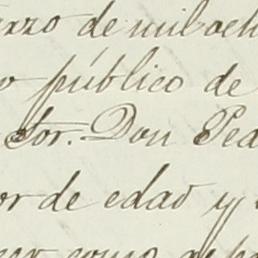 arzo de mil och
o público de
Sor. Don Ped
or de edad y
como